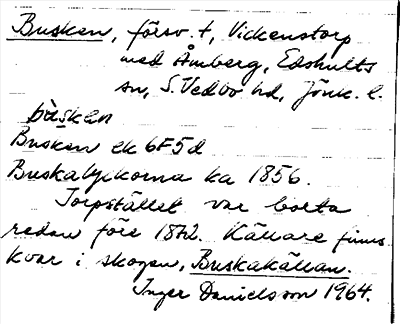 Busken, försv. t, Vickenstorp
med Åmberg, Edshults
sn, S. Vedbo hd, Jönk. l.
bùskan
Busken ek 6F5d
Buskalyckorna ka 1856.
Torpstället var borta
redan före 1872. Källare finns
kvar i skogen, Buskakällan.
Inger Danielsson 1964.